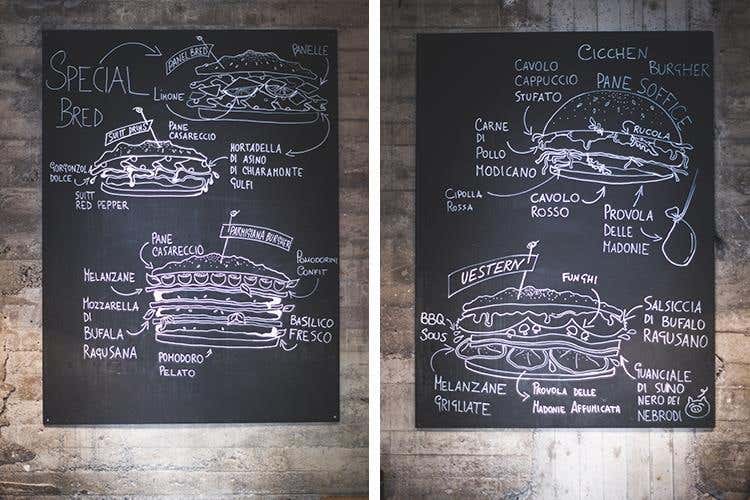 SPECIAL
BRED
PANEL BRED
PANELLE
LIMONE
SUIT DRIMS
PANE
CASARECCIO
HORTADELLA
DI ASINO
DI CHIARAMONTE
GULFI
GORGONZOLA
DOLCE
SUIT
RED PEPPER
PARMIGIANA BURGHER
PANE
CASARECCIO
POMODORINI
CONFIT
MELANZANE
MOZZARELLA
DI
BUFALA
RAGUSANA
BASILICO
FRESCO
POMODORO
PELATO
CICCHEN
BURGHER
CAVOLO
CAPPUCCIO
STUFATO
PANE SOFFICE
RUCOLA
CARNE
DI
POLLO
MODICANO
CIPOLLA
ROSSA
CAVOLO
ROSSO
PROVOLA
DELLE
MADONIE
UESTERN
FUNGHI
BBQ
SOUS
SALSICCIA
DI BUFALO
RAGUSANO
MELANZANE
GRIGLIATE
PROVOLA DELLE
MADONIE AFFUMICATA
GUANCIALE
DI SUINO
NERO DEI
NEBRODI